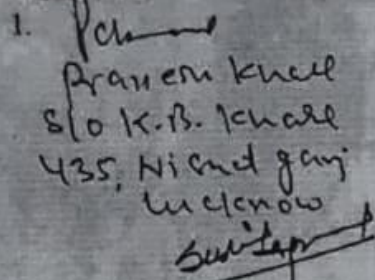 1.
Praveen Khare
S/o K.B. Khare
435, Nishat ganj
Lucknow